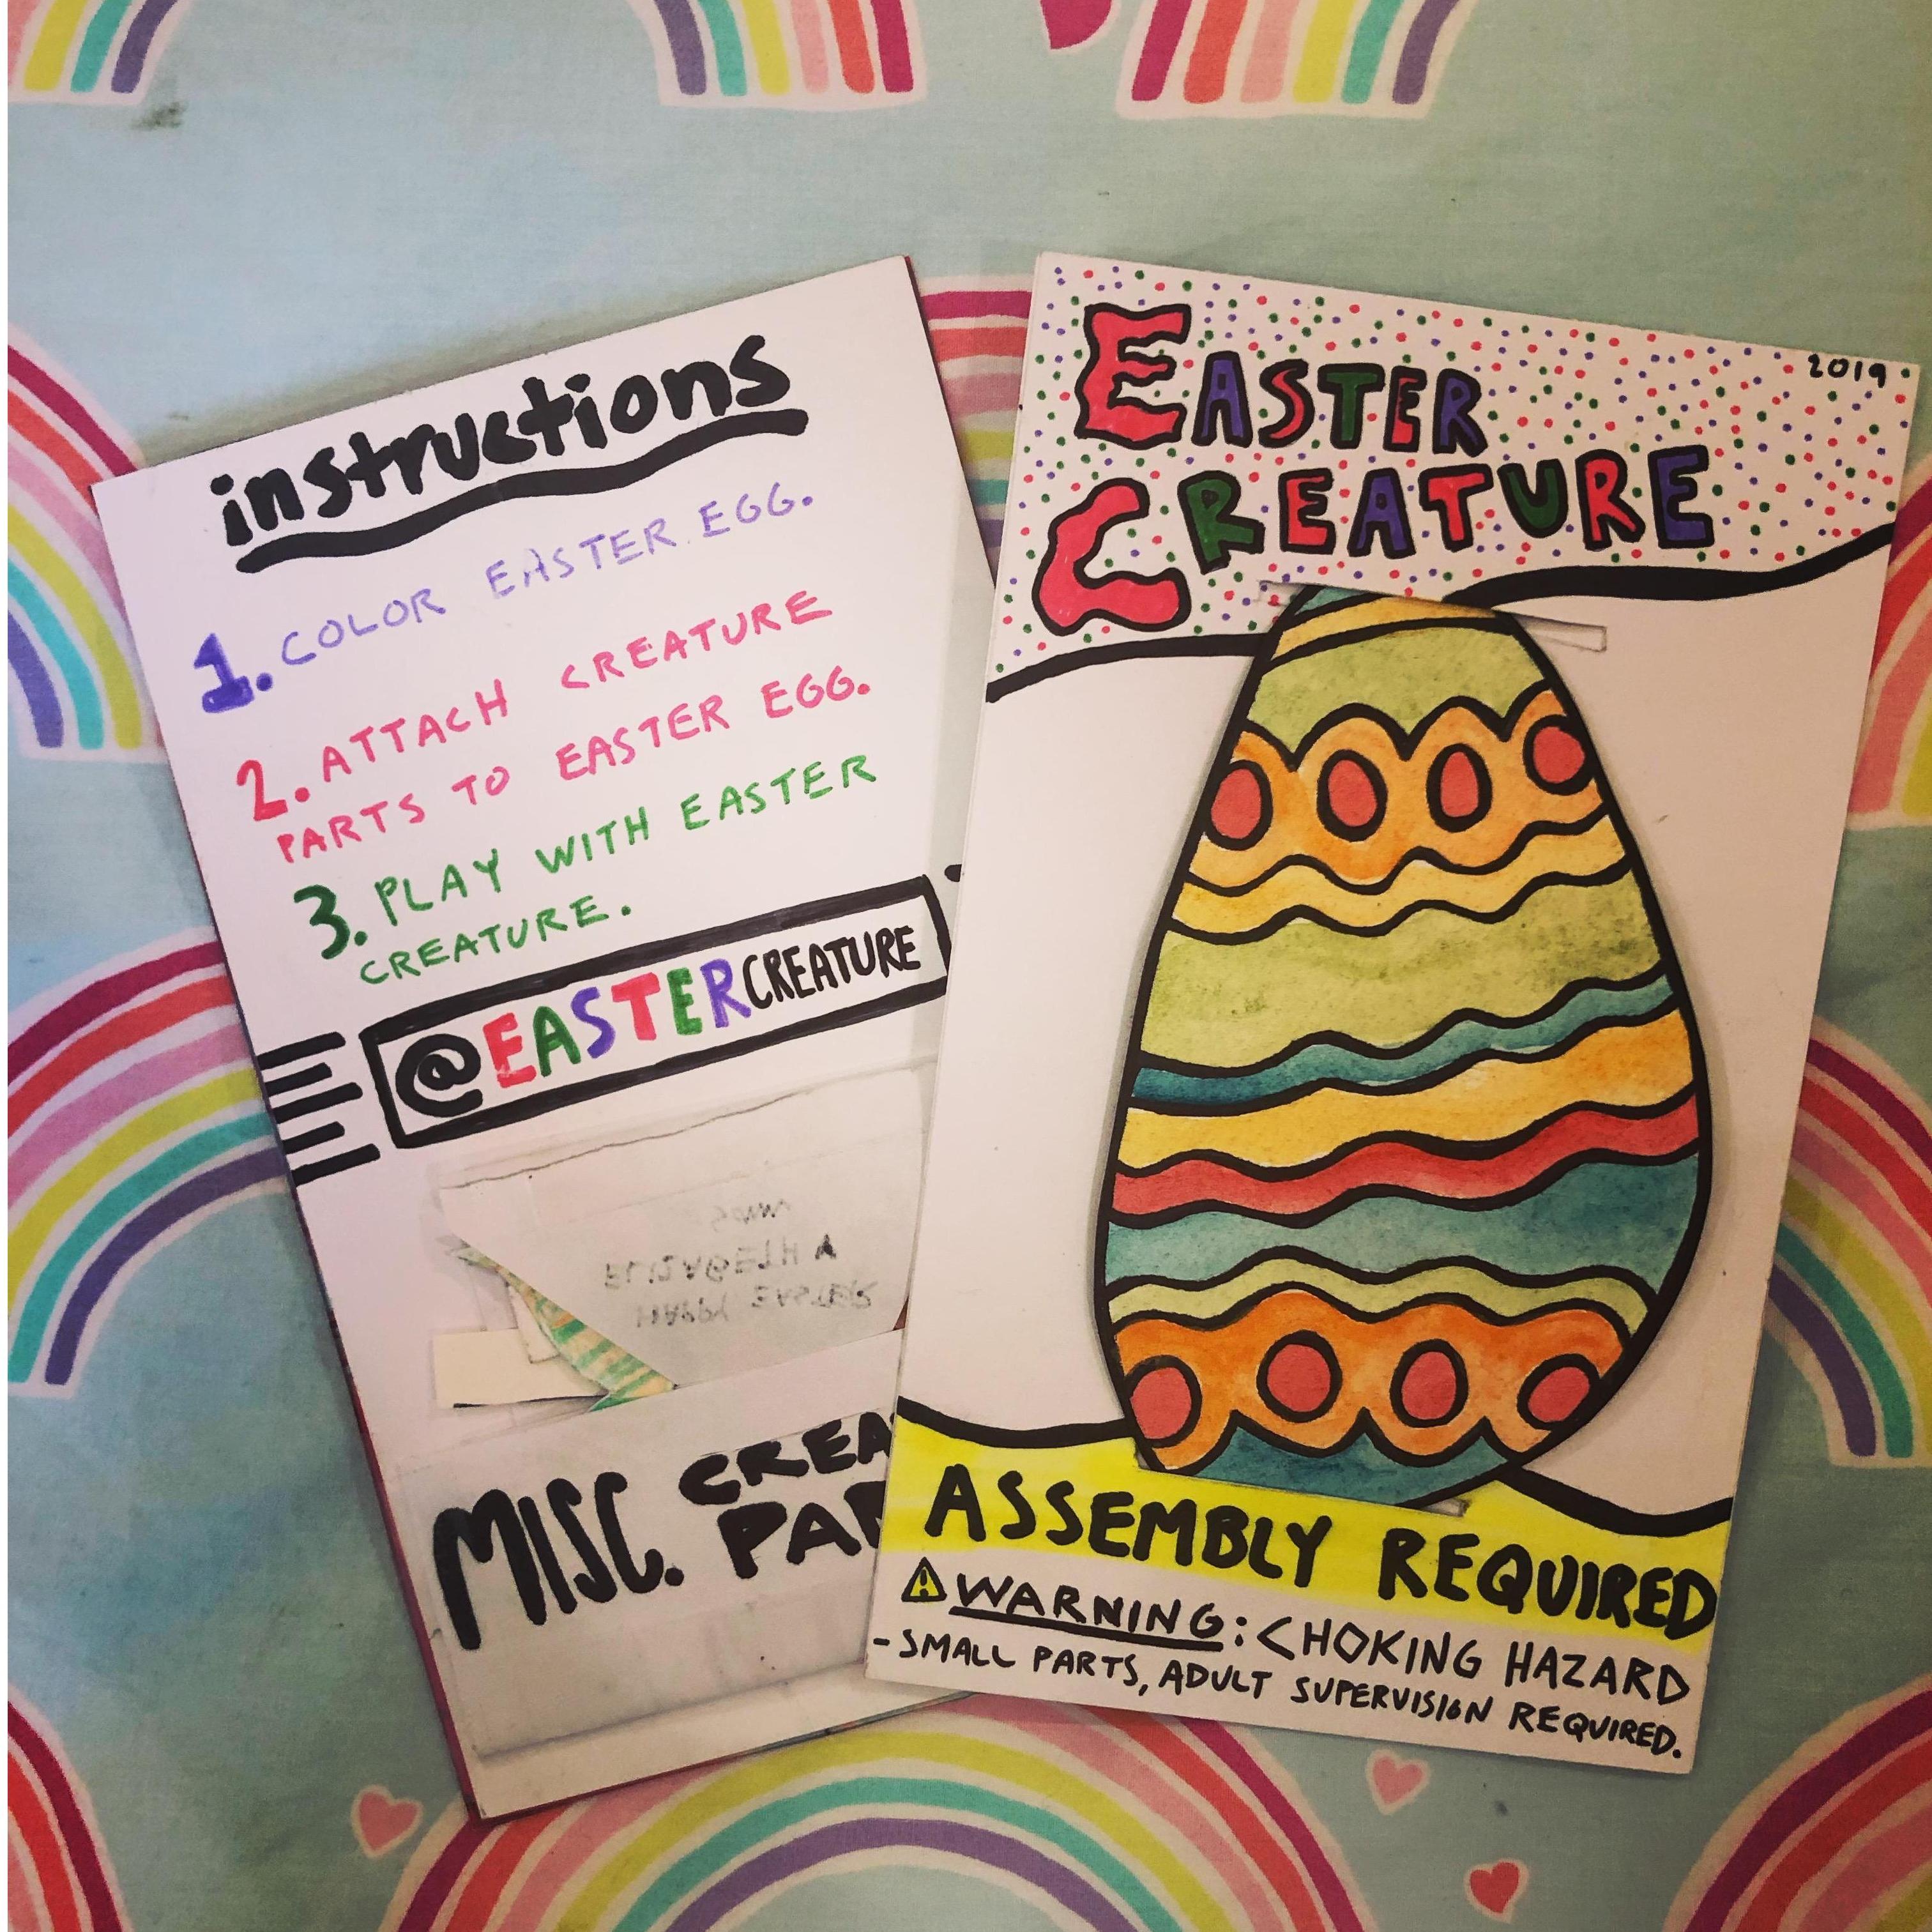 instructions
1. COLOR EASTER EGG.
2. ATTACH CREATURE
PARTS TO EASTER EGG.
3. PLAY WITH EASTER
CREATURE.
@EASTERCREATURE
HAPPY EASTER
ELIZABETH &
MISC. CREA
PAR
EASTER
2019
CREATURE
ASSEMBLY REQUIRED
⚠ WARNING: CHOKING HAZARD
-SMALL PARTS, ADULT SUPERVISION REQUIRED.